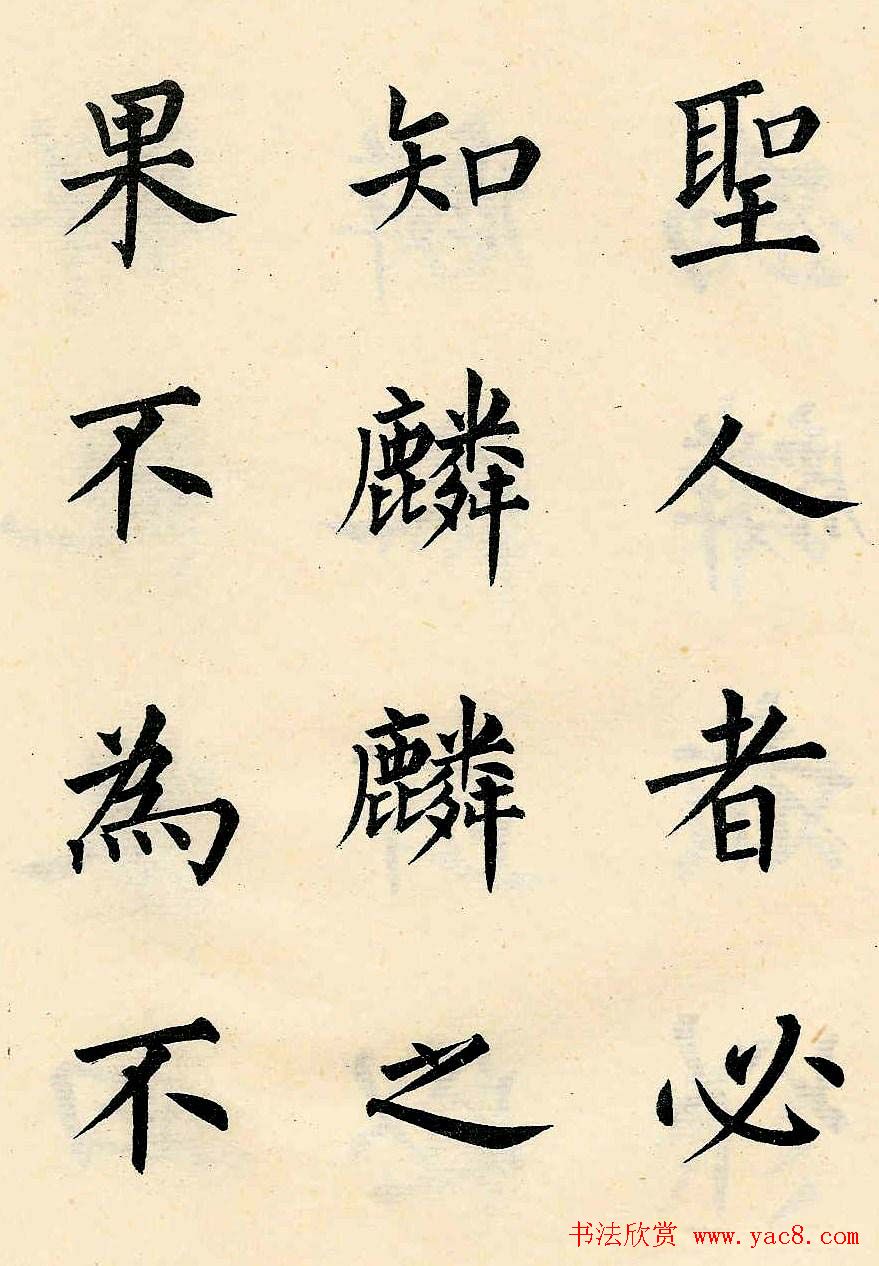 聖人者必
知麟麟之
果不為不
书法欣赏 www.yac8.com